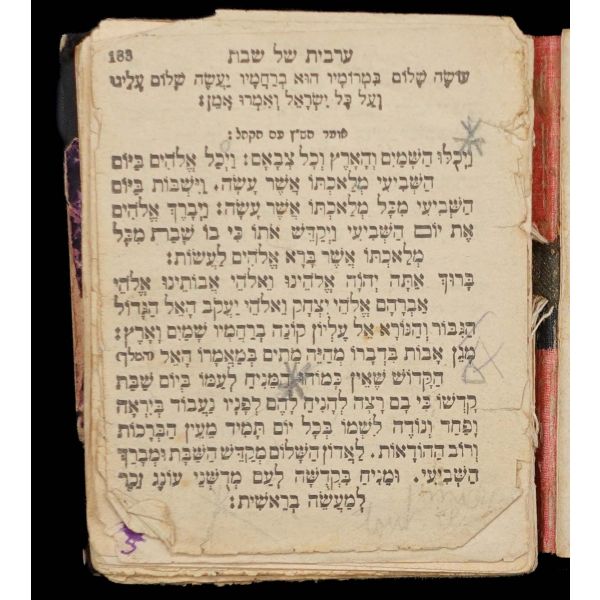 183 ערבית של שבת
עוֹשֶׂה שָׁלוֹם בִּמְרוֹמָיו הוּא בְּרַחֲמָיו יַעֲשֶׂה שָׁלוֹם עָלֵינוּ
וְעַל כָּל יִשְׂרָאֵל וְאִמְרוּ אָמֵן:
אומר הש״ץ עם הקהל:
וַיְכֻלּוּ הַשָּׁמַיִם וְהָאָרֶץ וְכָל צְבָאָם: וַיְכַל אֱלֹהִים בַּיּוֹם
הַשְּׁבִיעִי מְלַאכְתּוֹ אֲשֶׁר עָשָׂה, וַיִּשְׁבּוֹת בַּיּוֹם
הַשְּׁבִיעִי מִכָּל מְלַאכְתּוֹ אֲשֶׁר עָשָׂה: וַיְבָרֶךְ אֱלֹהִים
אֶת יוֹם הַשְּׁבִיעִי וַיְקַדֵּשׁ אֹתוֹ כִּי בוֹ שָׁבַת מִכָּל
מְלַאכְתּוֹ אֲשֶׁר בָּרָא אֱלֹהִים לַעֲשׂוֹת:
בָּרוּךְ אַתָּה יְהוָֹה אֱלֹהֵינוּ וֵאלֹהֵי אֲבוֹתֵינוּ אֱלֹהֵי
אַבְרָהָם אֱלֹהֵי יִצְחָק וֵאלֹהֵי יַעֲקֹב הָאֵל הַגָּדוֹל
הַגִּבּוֹר וְהַנּוֹרָא אֵל עֶלְיוֹן קוֹנֵה בְרַחֲמָיו שָׁמַיִם וָאָרֶץ:
מָגֵן אָבוֹת בִּדְבָרוֹ מְחַיֵּה מֵתִים בְּמַאֲמָרוֹ הָאֵל המלך
הַקָּדוֹשׁ שֶׁאֵין כָּמוֹהוּ מֵנִיחַ לְעַמּוֹ בְּיוֹם שַׁבַּת
קָדְשׁוֹ כִּי בָם רָצָה לְהָנִיחַ לָהֶם לְפָנָיו נַעֲבוֹד בְּיִרְאָה
וָפַחַד וְנוֹדֶה לִשְׁמוֹ בְּכָל יוֹם תָּמִיד מֵעֵין הַבְּרָכוֹת
וְרוֹב הַהוֹדָאוֹת. לַאֲדוֹן הַשָּׁלוֹם מְקַדֵּשׁ הַשַּׁבָּת וּמְבָרֵךְ
הַשְּׁבִיעִי. וּמֵנִיחַ בִּקְדֻשָּׁה לְעַם מְדֻשְּׁנֵי עוֹנֶג זֵכֶר
לְמַעֲשֵׂה בְרֵאשִׁית: